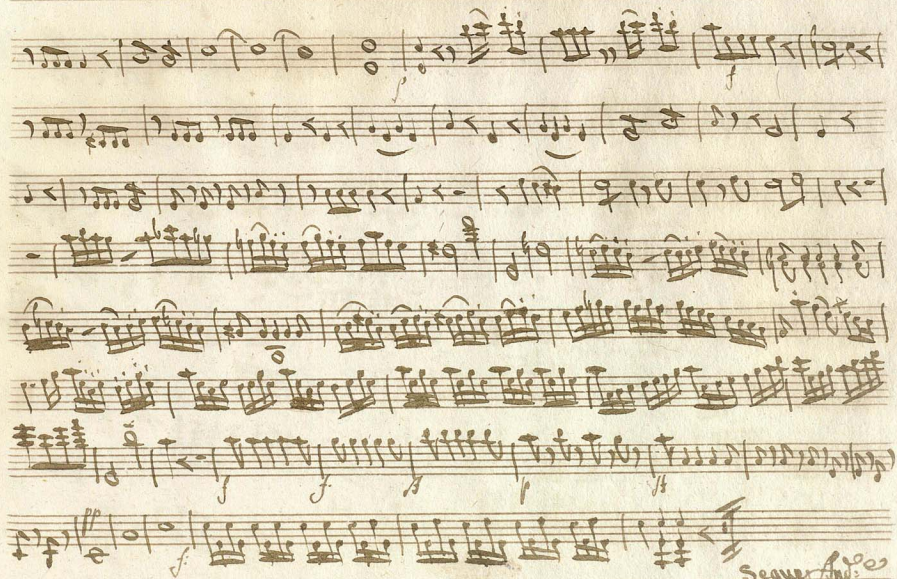 p f
f f ff p ff
pp
f
Segue And:e